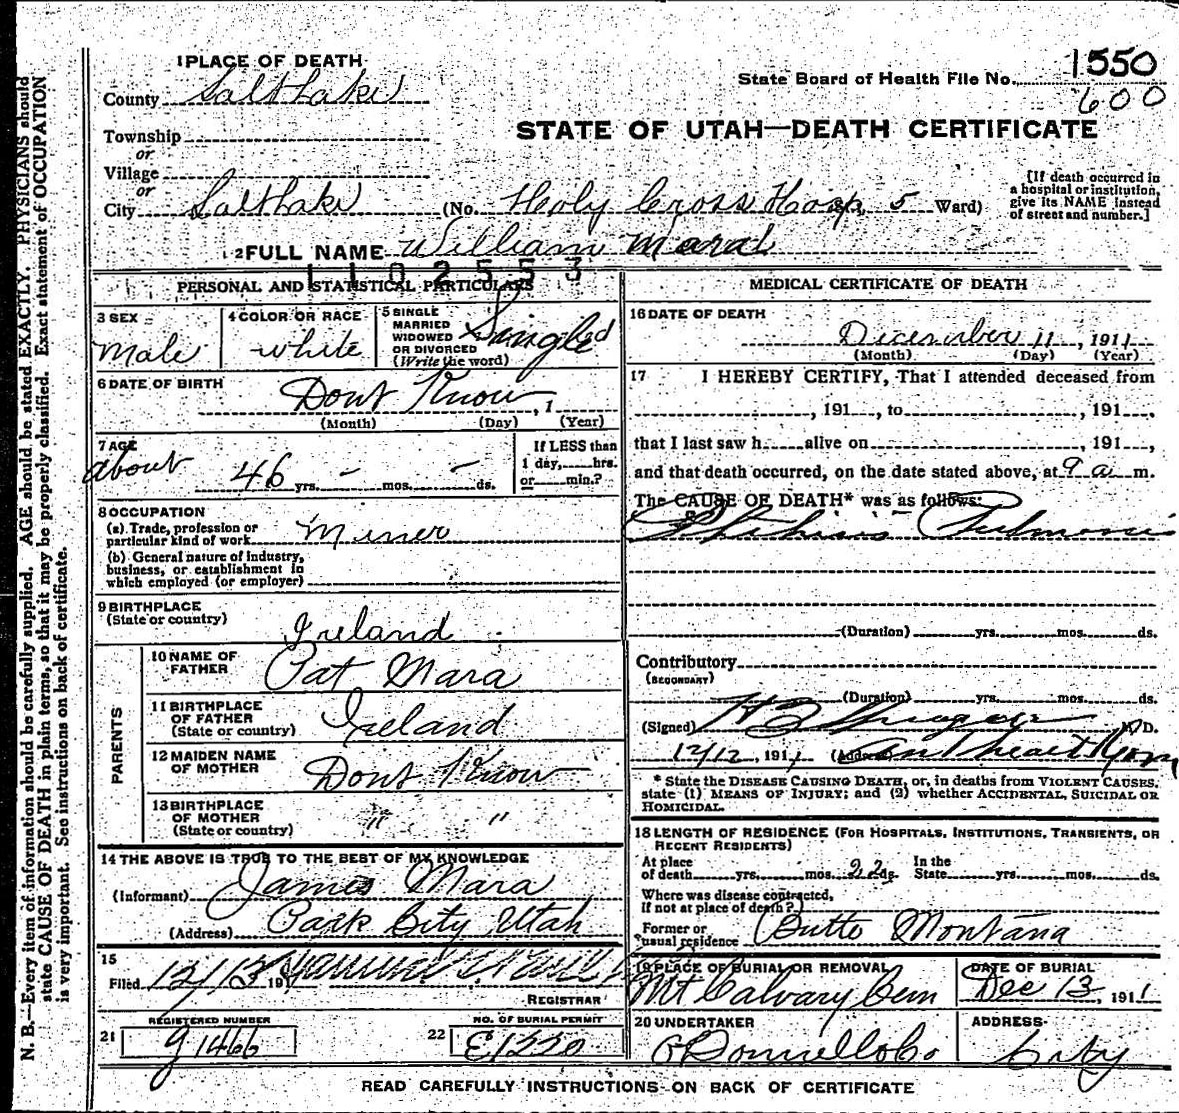 1 PLACE OF DEATH
County Salt Lake
Township
or
Village
or
City Salt Lake (No. Holy Cross Hosp, 5 Ward)
State Board of Health File No. 1550
600
STATE OF UTAH—DEATH CERTIFICATE
[If death occurred in
a hospital or institution,
give its NAME instead
of street and number.]
2 FULL NAME William Mara
1102553
PERSONAL AND STATISTICAL PARTICULARS
3 SEX
Male
4 COLOR OR RACE
white
5 SINGLE
MARRIED
WIDOWED
OR DIVORCED
(Write the word)
Single
6 DATE OF BIRTH
Dont Know, 1
(Month) (Day) (Year)
7 AGE
about 46 yrs. - mos. - ds.
If LESS than
1 day, hrs.
or min.?
8 OCCUPATION
(a) Trade, profession or
particular kind of work Miner
(b) General nature of industry,
business, or establishment in
which employed (or employer)
9 BIRTHPLACE
(State or country)
Ireland
PARENTS
10 NAME OF
FATHER
Pat Mara
11 BIRTHPLACE
OF FATHER
(State or country)
Ireland
12 MAIDEN NAME
OF MOTHER
Dont Know
13 BIRTHPLACE
OF MOTHER
(State or country)
" "
14 THE ABOVE IS TRUE TO THE BEST OF MY KNOWLEDGE
(Informant) James Mara
(Address) Park City Utah
15
Filed 12/13 1911
REGISTRAR
REGISTERED NUMBER
21 g1466
NO. OF BURIAL PERMIT
22 E1220
MEDICAL CERTIFICATE OF DEATH
16 DATE OF DEATH
December 11, 1911
(Month) (Day) (Year)
17 I HEREBY CERTIFY, That I attended deceased from
, 191 , to , 191 ,
that I last saw h alive on , 191 ,
and that death occurred, on the date stated above, at 9 a m.
The CAUSE OF DEATH* was as follows:
Phthisis Pulmonis
(Duration) yrs. mos. ds.
Contributory
(SECONDARY)
(Duration) yrs. mos. ds.
(Signed) M.D.
12/12, 1911 (Address)
* State the DISEASE CAUSING DEATH, or, in deaths from VIOLENT CAUSES,
state (1) MEANS OF INJURY; and (2) whether ACCIDENTAL, SUICIDAL OR
HOMICIDAL.
18 LENGTH OF RESIDENCE (FOR HOSPITALS, INSTITUTIONS, TRANSIENTS, OR
RECENT RESIDENTS)
At place
of death yrs. mos. 22 ds.
In the
State yrs. mos. ds.
Where was disease contracted,
if not at place of death?
Former or
usual residence Butte Montana
19 PLACE OF BURIAL OR REMOVAL
Mt Calvary Cem
DATE OF BURIAL
Dec 13, 1911
20 UNDERTAKER
O'Donnell Co.
ADDRESS
City
READ CAREFULLY INSTRUCTIONS ON BACK OF CERTIFICATE
N. B.—Every item of information should be carefully supplied. AGE should be stated EXACTLY. PHYSICIANS should
state CAUSE OF DEATH in plain terms, so that it may be properly classified. Exact statement of OCCUPATION
is very important. See instructions on back of certificate.